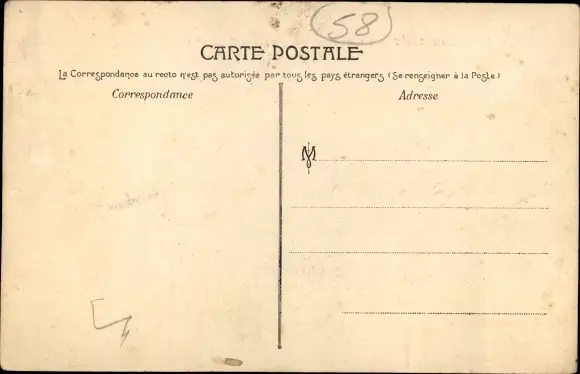 58
CARTE POSTALE
La Correspondance au recto n'est pas autorisée par tous les pays étrangers (Se renseigner à la Poste)
Correspondance
Adresse
M